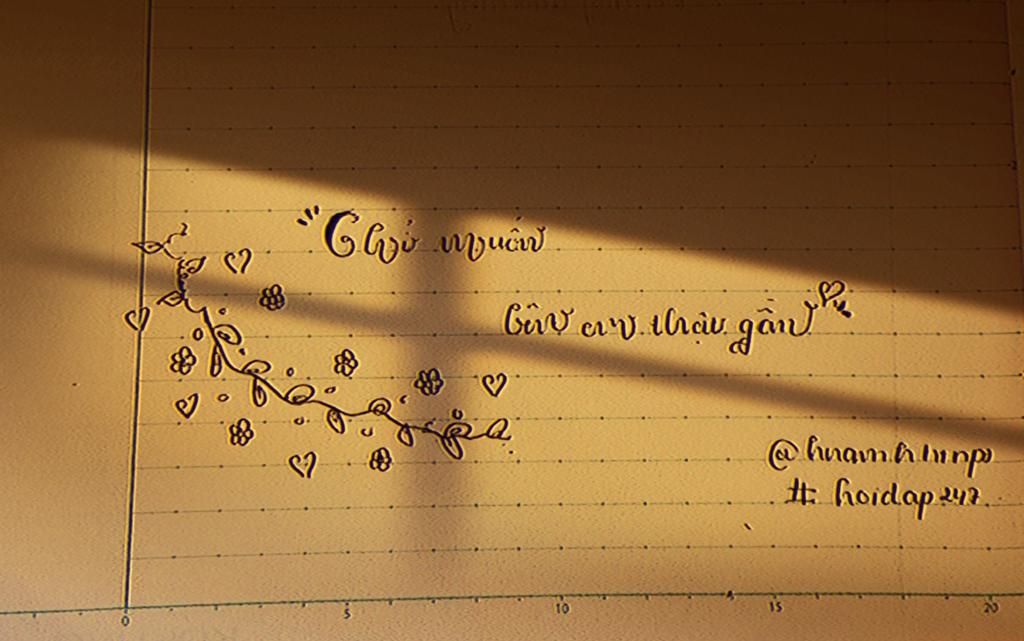 "Chỉ muốn
bên em thậu gần"
# hoidap247
0 5 10 15 20